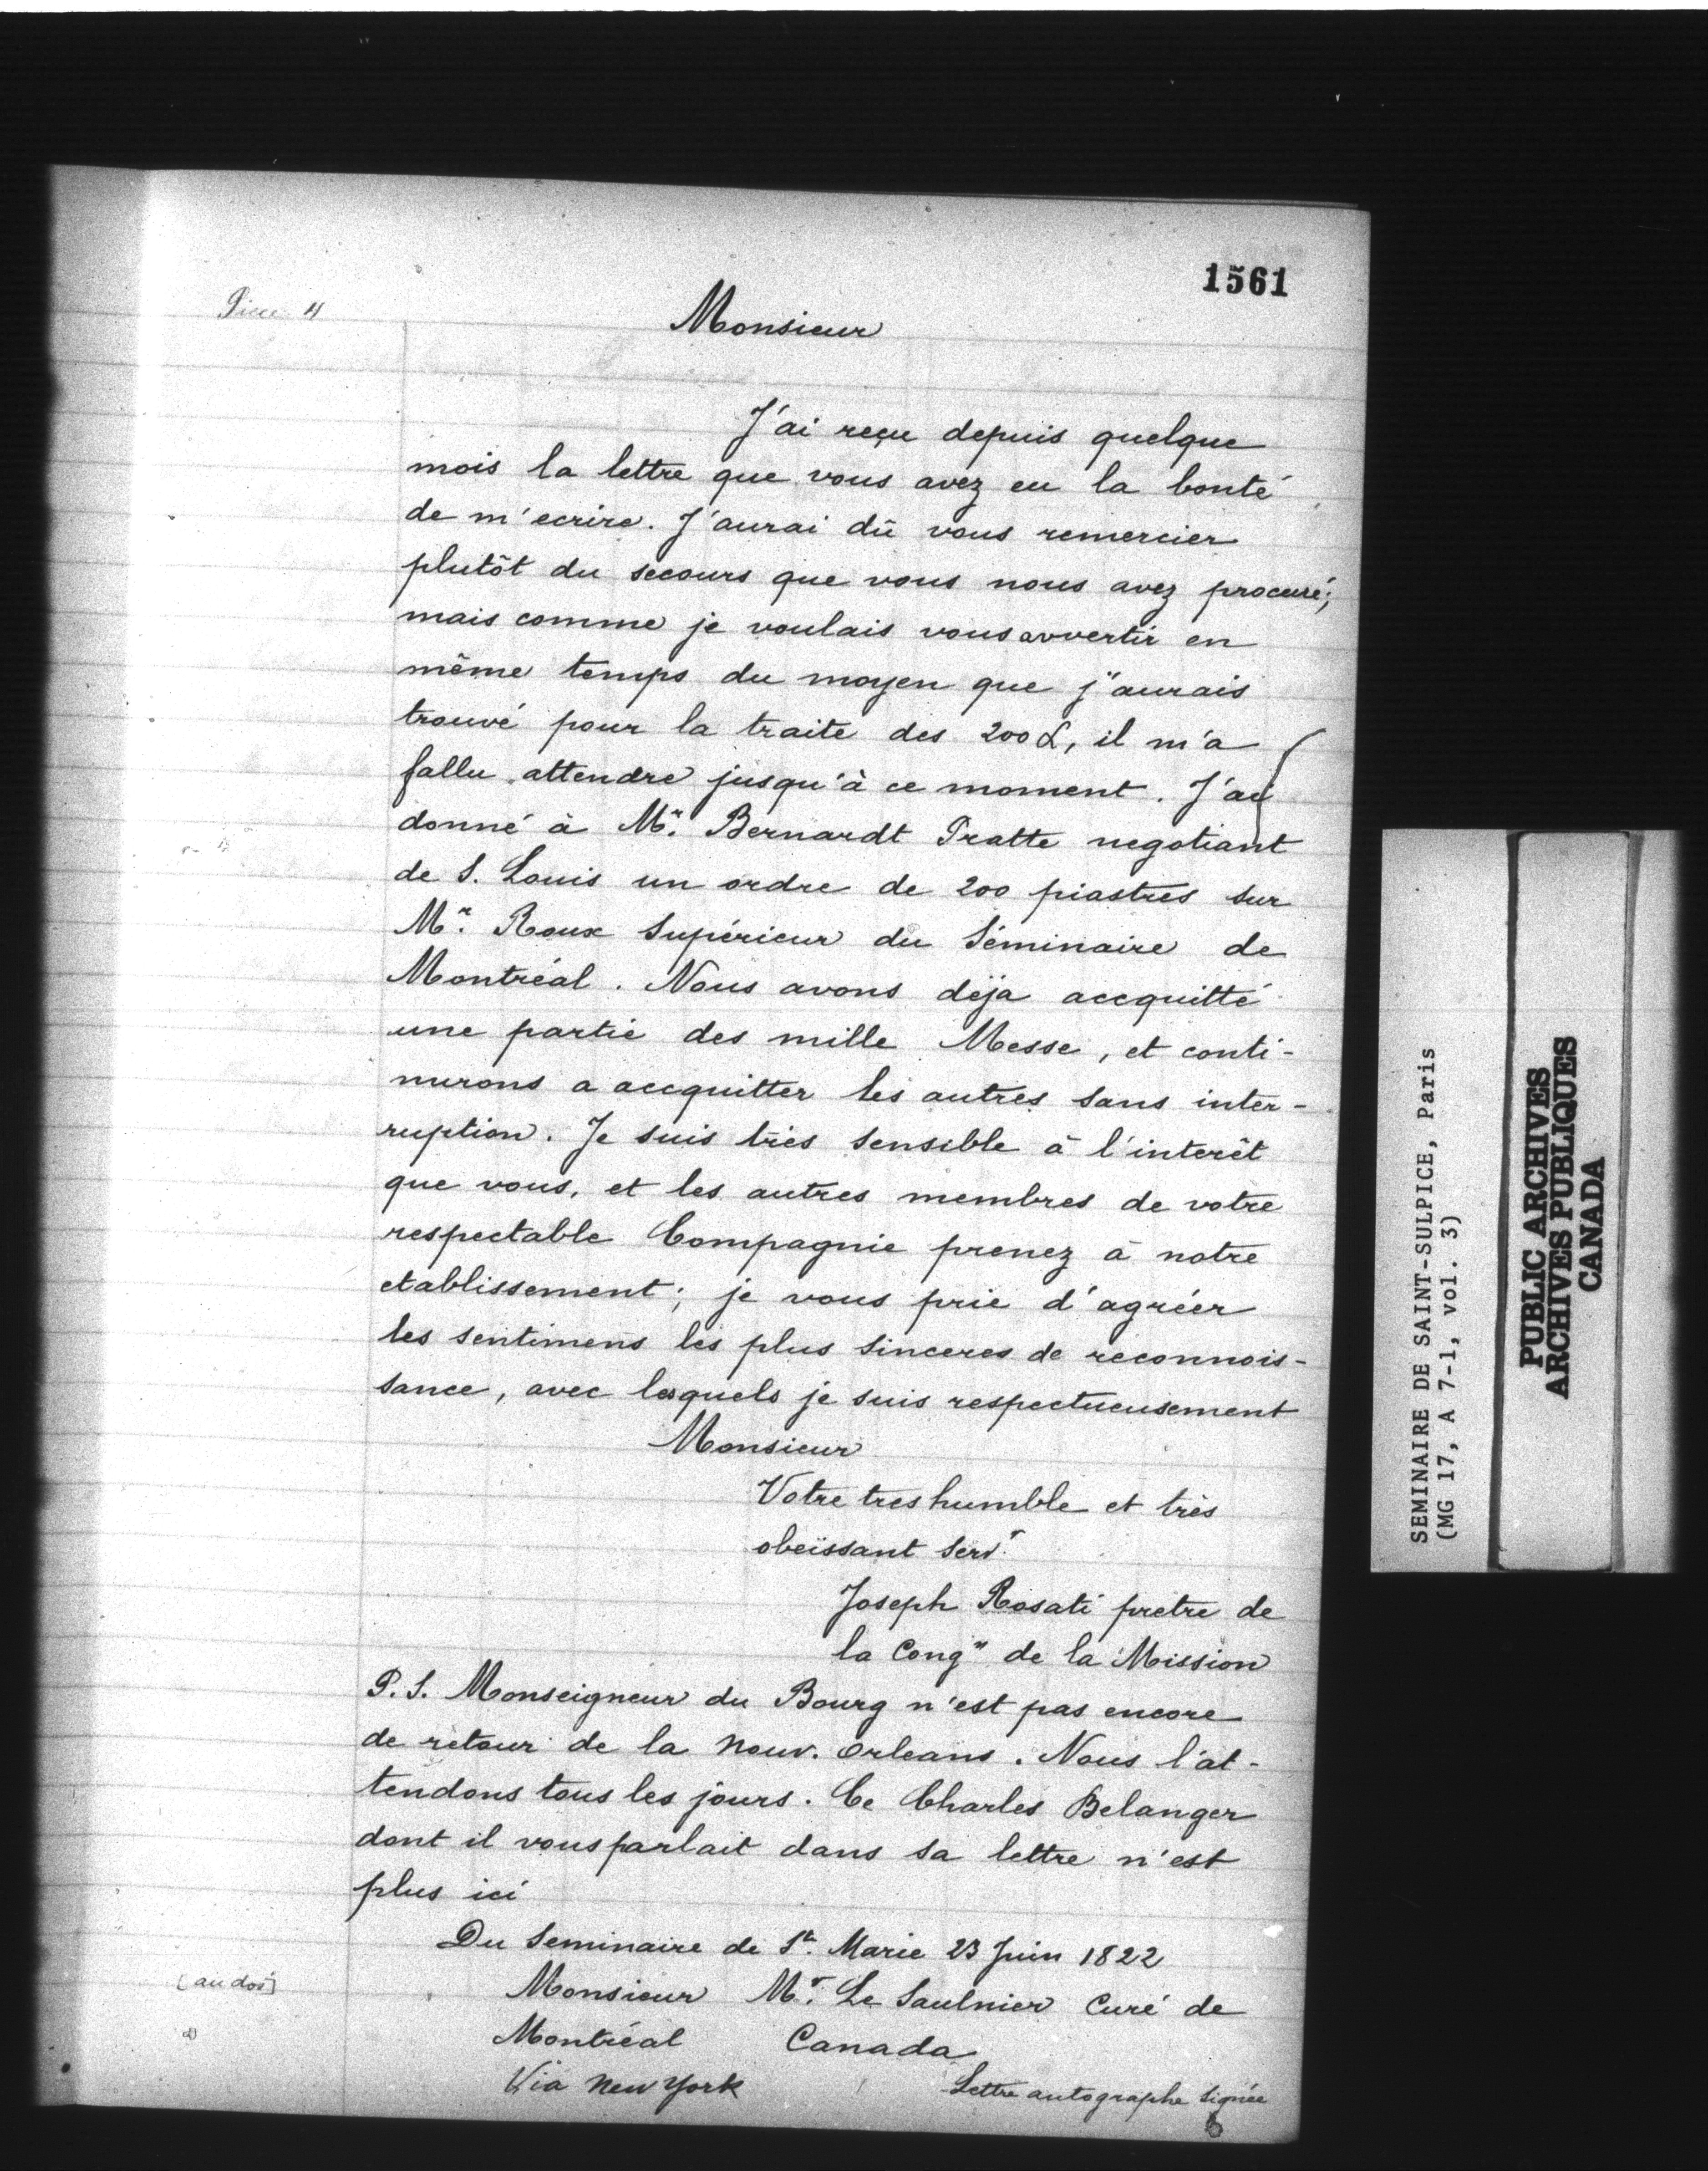 1561
Pièce 4
Monsieur
J'ai reçu depuis quelque
mois la lettre que vous avez eu la bonté
de m'ecrire. J'aurai dû vous remercier
plutôt du secours que vous nous avez procuré;
mais comme je voulais vous avvertir en
même temps du moyen que j'aurais
trouvé pour la traite des 200 £, il m'a
fallu attendre jusqu'à ce moment. J'ai
donné à Mr. Bernardt Pratte negotiant
de S. Louis un ordre de 200 piastres sur
Mr. Roux Supérieur du Séminaire de
Montréal. Nous avons déja accquitté
une partie des mille Messe, et conti-
nurons a accquitter les autres sans inter-
ruption. Je suis très sensible à l'interêt
que vous, et les autres membres de votre
respectable Compagnie prenez à notre
etablissement; je vous prie d'agréer
les sentimens les plus sinceres de reconnois-
sance, avec lesquels je suis respectueusement
Monsieur
Votre tres humble et très
obeïssant servr.
Joseph Rosati pretre de
la Congn de la Mission
P.S. Monseigneur du Bourg n'est pas encore
de retour de la Nouv. Orleans. Nous l'at-
tendons tous les jours. Ce Charles Belanger
dont il vous parlait dans sa lettre n'est
plus ici
Du Seminaire de Ste. Marie 23 Juin 1822
[au dos]
Monsieur Mr. Le Saulnier Curé de
Montréal Canada
Via New York
Lettre autographe signée
SEMINAIRE DE SAINT-SULPICE, Paris
(MG 17, A 7-1, vol. 3)
PUBLIC ARCHIVES
ARCHIVES PUBLIQUES
CANADA